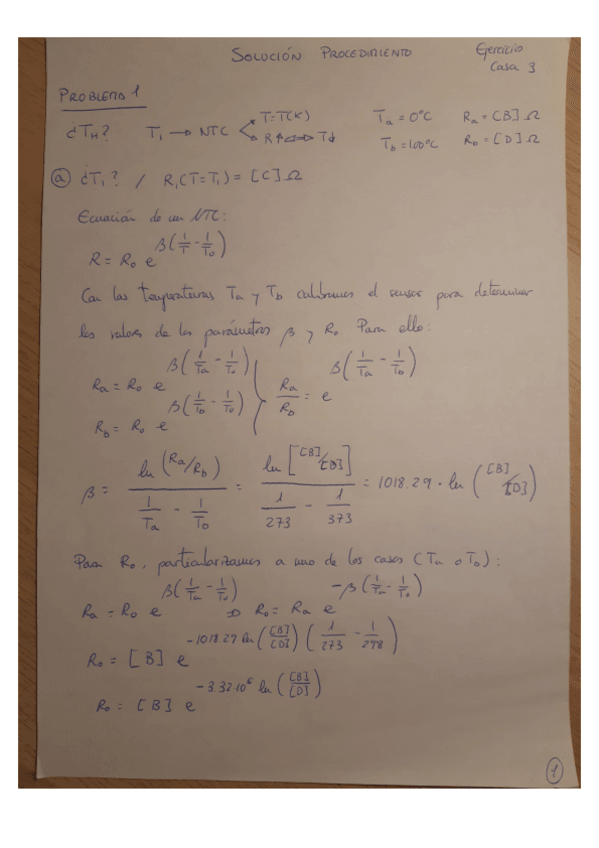 SOLUCIÓN PROCEDIMIENTO
Ejercicio
Casa 3
PROBLEMA 1
¿T_H? T_1 → NTC T=T(K) R↑⇔T↓ T_a = 0°C R_a = [B] Ω
T_b = 100°C R_b = [D] Ω
ⓐ ¿T_1? / R_1(T=T_1) = [C] Ω
Ecuación de un NTC:
R = R_0 e^{β(1/T - 1/T_0)}
Con las temperaturas T_a y T_b calibramos el sensor para determinar
los valores de los parámetros β y R_0 Para ello:
R_a = R_0 e^{β(1/T_a - 1/T_0)}
R_b = R_0 e^{β(1/T_b - 1/T_0)} } R_a/R_b = e^{β(1/T_a - 1/T_b)}
β = ln(R_a/R_b) / (1/T_a - 1/T_b) = ln[[B]/[D]] / (1/273 - 1/373) = 1018.29 · ln([B]/[D])
Para R_0, particularizamos a uno de los casos (T_a o T_b):
R_a = R_0 e^{β(1/T_a - 1/T_0)} ⇒ R_0 = R_a e^{-β(1/T_a - 1/T_0)}
R_0 = [B] e^{-1018.29 ln([B]/[D]) (1/273 - 1/298)}
R_0 = [B] e^{-3.32·10^6 ln([B]/[D])}
①